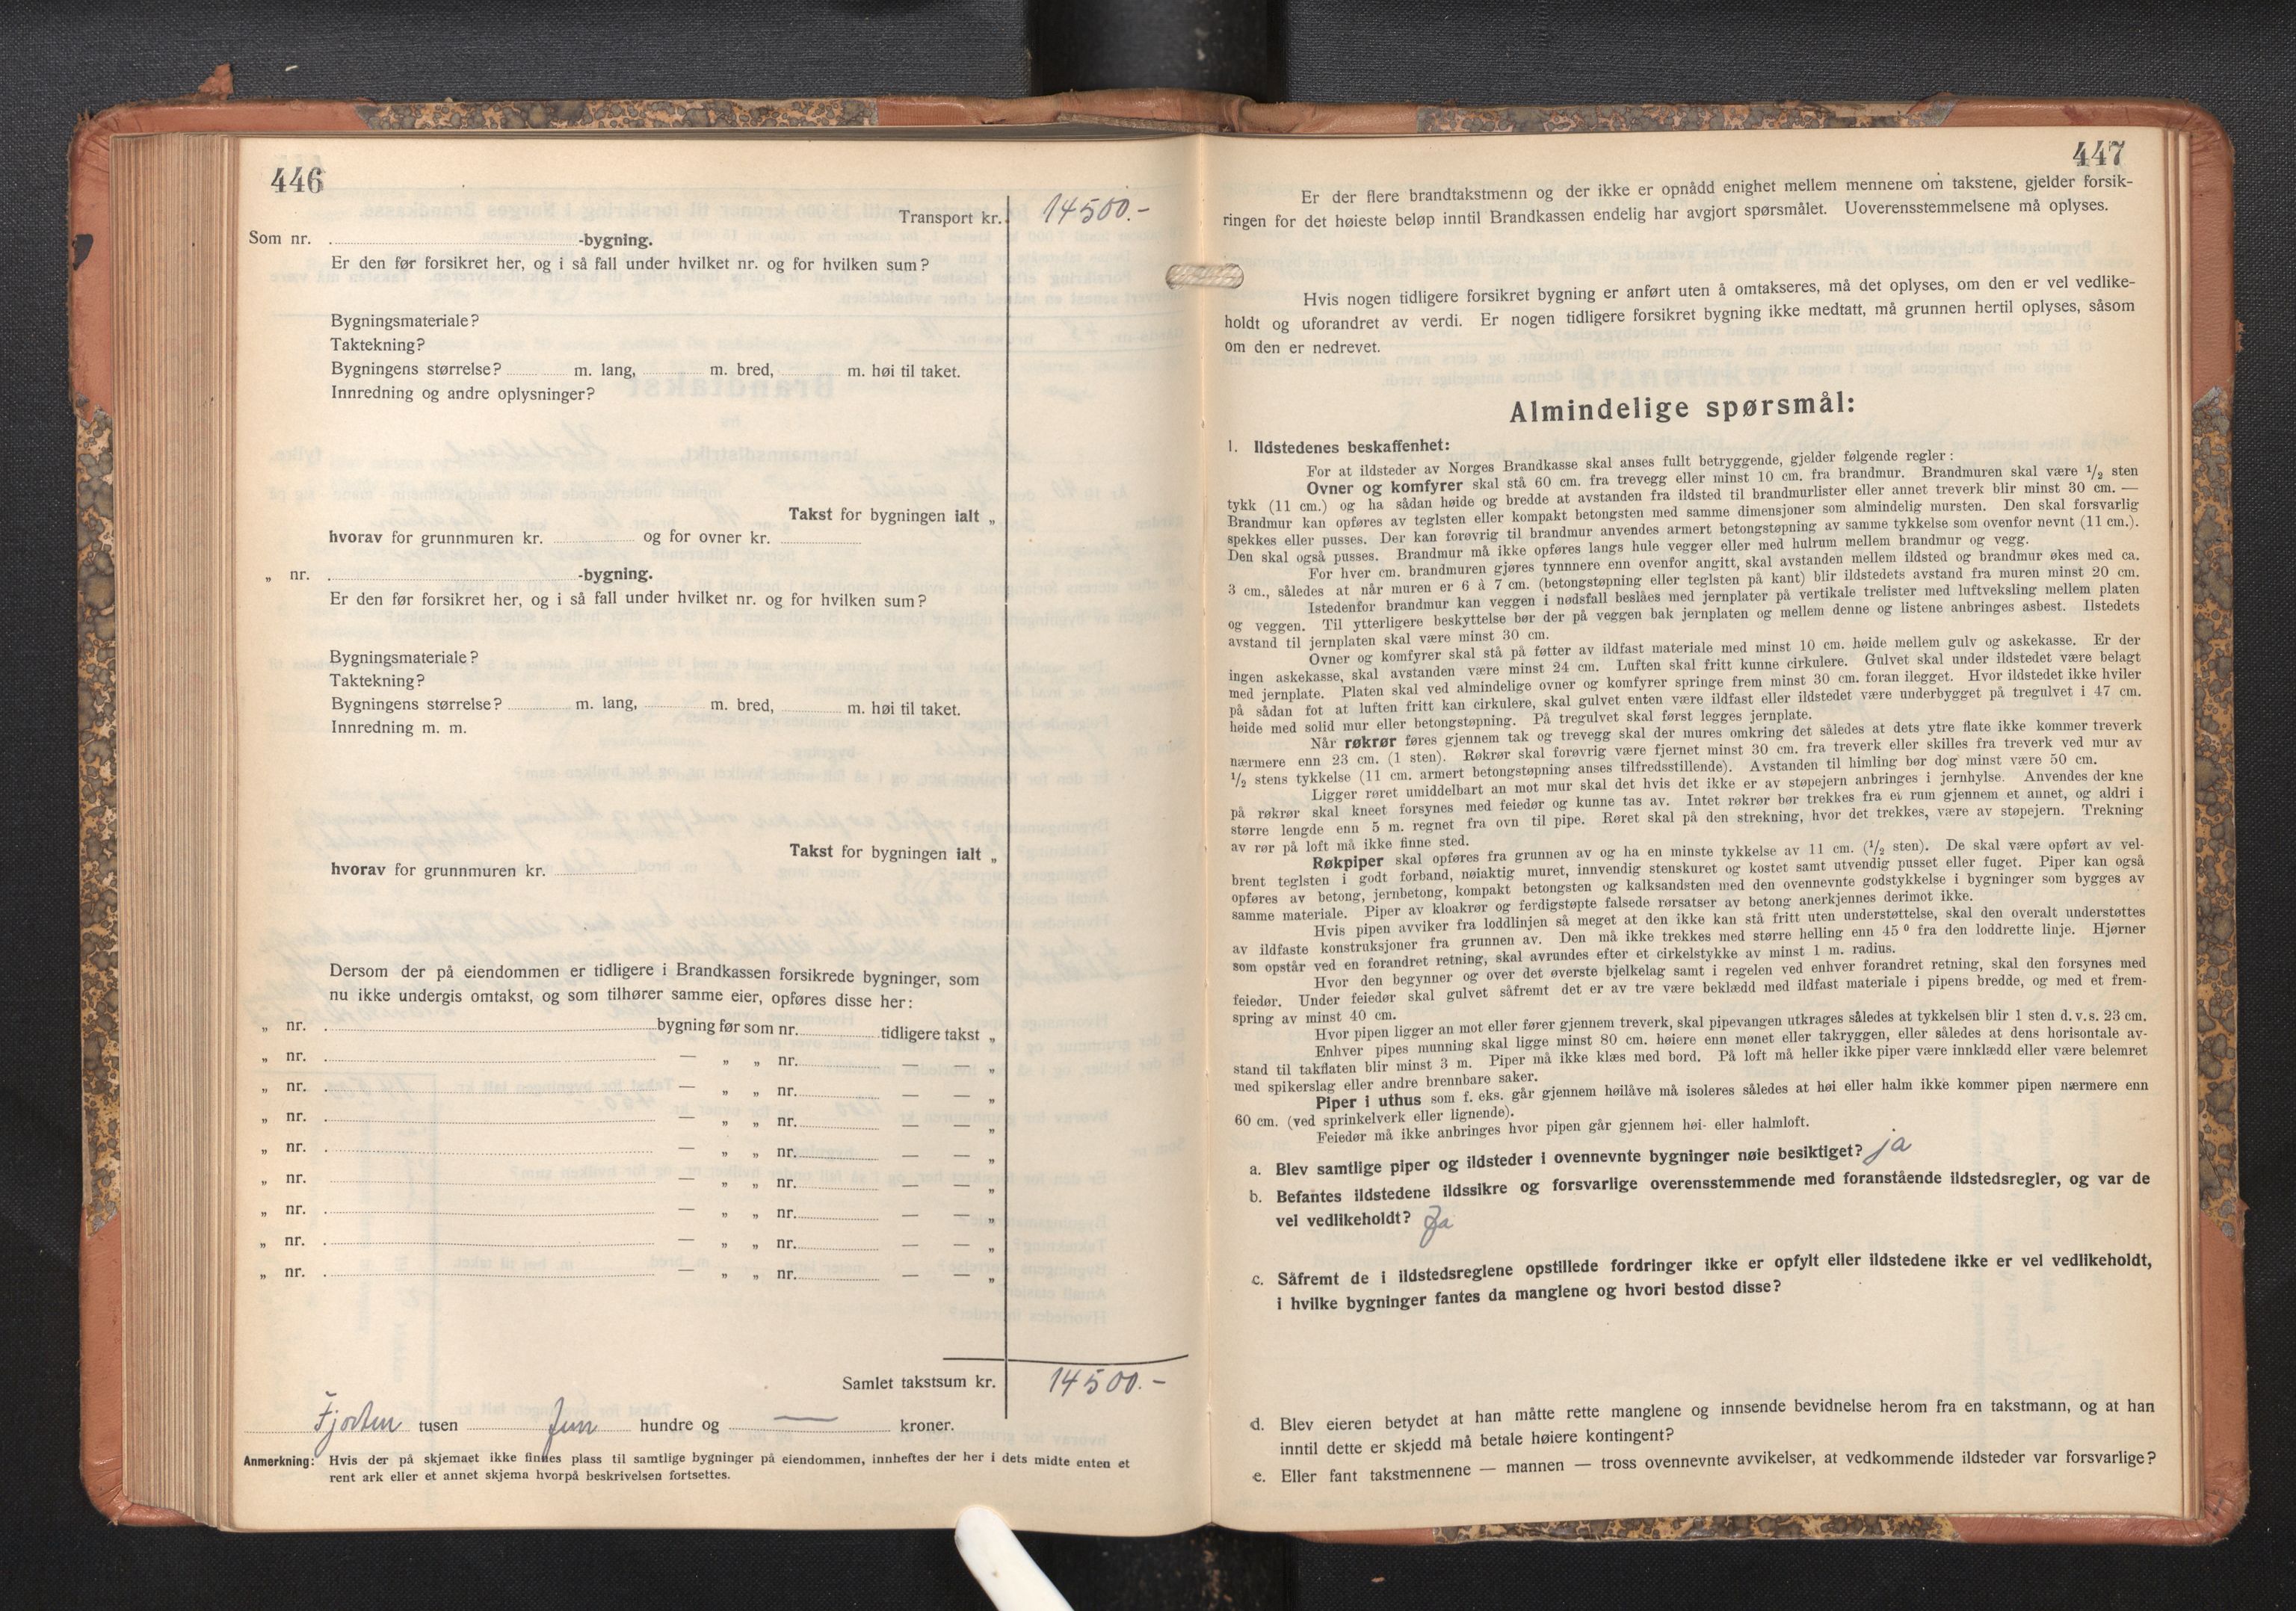 446
Transport kr. 14500.-
Som nr. -bygning.
Er den før forsikret her, og i så fall under hvilket nr. og for hvilken sum?
Bygningsmateriale?
Taktekning?
Bygningens størrelse? m. lang, m. bred, m. høi til taket.
Innredning og andre oplysninger?
Takst for bygningen ialt „
hvorav for grunnmuren kr. og for ovner kr.
„ nr. -bygning.
Er den før forsikret her, og i så fall under hvilket nr. og for hvilken sum?
Bygningsmateriale?
Taktekning?
Bygningens størrelse? m. lang, m. bred, m. høi til taket.
Innredning m. m.
Takst for bygningen ialt „
hvorav for grunnmuren kr.
Dersom der på eiendommen er tidligere i Brandkassen forsikrede bygninger, som
nu ikke undergis omtakst, og som tilhører samme eier, opføres disse her:
„ nr. bygning før som nr. tidligere takst „
„ nr. — „ „ nr. — — „
„ nr. — „ „ nr. — — „
„ nr. — „ „ nr. — — „
„ nr. — „ „ nr. — — „
„ nr. — „ „ nr. — — „
„ nr. — „ „ nr. — — „
„ nr. — „ „ nr. — — „
„ nr. — „ „ nr. — — „
Samlet takstsum kr. 14500.-
Fjorten tusen fem hundre og — kroner.
Anmerkning: Hvis der på skjemaet ikke finnes plass til samtlige bygninger på eiendommen, innheftes der her i dets midte enten et
rent ark eller et annet skjema hvorpå beskrivelsen fortsettes.
447
Er der flere brandtakstmenn og der ikke er opnådd enighet mellem mennene om takstene, gjelder forsik-
ringen for det høieste beløp inntil Brandkassen endelig har avgjort spørsmålet. Uoverensstemmelsene må oplyses.
Hvis nogen tidligere forsikret bygning er anført uten å omtakseres, må det oplyses, om den er vel vedlike-
holdt og uforandret av verdi. Er nogen tidligere forsikret bygning ikke medtatt, må grunnen hertil oplyses, såsom
om den er nedrevet.
Almindelige spørsmål:
1. Ildstedenes beskaffenhet:
For at ildsteder av Norges Brandkasse skal anses fullt betryggende, gjelder følgende regler:
Ovner og komfyrer skal stå 60 cm. fra trevegg eller minst 10 cm. fra brandmur. Brandmuren skal være 1/2 sten
tykk (11 cm.) og ha sådan høide og bredde at avstanden fra ildsted til brandmurlister eller annet treverk blir minst 30 cm. —
Brandmur kan opføres av teglsten eller kompakt betongsten med samme dimensjoner som almindelig mursten. Den skal forsvarlig
spekkes eller pusses. Der kan forøvrig til brandmur anvendes armert betongstøpning av samme tykkelse som ovenfor nevnt (11 cm.).
Den skal også pusses. Brandmur må ikke opføres langs hule vegger eller med hulrum mellem brandmur og vegg.
For hver cm. brandmuren gjøres tynnnere enn ovenfor angitt, skal avstanden mellem ildsted og brandmur økes med ca.
3 cm., således at når muren er 6 à 7 cm. (betongstøpning eller teglsten på kant) blir ildstedets avstand fra muren minst 20 cm.
Istedenfor brandmur kan veggen i nødsfall beslåes med jernplater på vertikale trelister med luftveksling mellem platen
og veggen. Til ytterligere beskyttelse bør der på veggen bak jernplaten og mellem denne og listene anbringes asbest. Ilstedets
avstand til jernplaten skal være minst 30 cm.
Ovner og komfyrer skal stå på føtter av ildfast materiale med minst 10 cm. høide mellem gulv og askekasse. Er der
ingen askekasse, skal avstanden være minst 24 cm. Luften skal fritt kunne cirkulere. Gulvet skal under ildstedet være belagt
med jernplate. Platen skal ved almindelige ovner og komfyrer springe frem minst 30 cm. foran ilegget. Hvor ildstedet ikke hviler
på sådan fot at luften fritt kan cirkulere, skal gulvet enten være ildfast eller ildstedet være underbygget på tregulvet i 47 cm.
høide med solid mur eller betongstøpning. På tregulvet skal først legges jernplate.
Når røkrør føres gjennem tak og trevegg skal der mures omkring det således at dets ytre flate ikke kommer treverk
nærmere enn 23 cm. (1 sten). Røkrør skal forøvrig være fjernet minst 30 cm. fra treverk eller skilles fra treverk ved mur av
1/2 stens tykkelse (11 cm. armert betongstøpning anses tilfredsstillende). Avstanden til himling bør dog minst være 50 cm.
Ligger røret umiddelbart an mot mur skal det hvis det ikke er av støpejern anbringes i jernhylse. Anvendes der kne
på røkrør skal kneet forsynes med feiedør og kunne tas av. Intet røkrør bør trekkes fra et rum gjennem et annet, og aldri i
større lengde enn 5 m. regnet fra ovn til pipe. Røret skal på den strekning, hvor det trekkes, være av støpejern. Trekning
av rør på loft må ikke finne sted.
Røkpiper skal opføres fra grunnen av og ha en minste tykkelse av 11 cm. (1/2 sten). De skal være opført av vel-
brent teglsten i godt forband, nøiaktig muret, innvendig stenskuret og kostet samt utvendig pusset eller fuget. Piper kan også
opføres av betong, jernbetong, kompakt betongsten og kalksandsten med den ovennevnte godstykkelse i bygninger som bygges av
samme materiale. Piper av kloakrør og ferdigstøpte falsede rørsatser av betong anerkjennes derimot ikke.
Hvis pipen avviker fra loddlinjen så meget at den ikke kan stå fritt uten understøttelse, skal den overalt understøttes
av ildfaste konstruksjoner fra grunnen av. Den må ikke trekkes med større helling enn 45° fra den loddrette linje. Hjørner
som opstår ved en forandret retning, skal avrundes efter et cirkelstykke av minst 1 m. radius.
Hvor den begynner og over det øverste bjelkelag samt i regelen ved enhver forandret retning, skal den forsynes med
feiedør. Under feiedør skal gulvet såfremt det er av tre være beklædd med ildfast materiale i pipens bredde, og med et frem-
spring av minst 40 cm.
Hvor pipen ligger an mot eller fører gjennem treverk, skal pipevangen utkrages således at tykkelsen blir 1 sten d. v. s. 23 cm.
Enhver pipes munning skal ligge minst 80 cm. høiere enn mønet eller takryggen, eller således at dens horisontale av-
stand til takflaten blir minst 3 m. Piper må ikke klæs med bord. På loft må heller ikke piper være innklædd eller være belemret
med spikerslag eller andre brennbare saker.
Piper i uthus som f. eks. går gjennem høilåve må isoleres således at høi eller halm ikke kommer pipen nærmere enn
60 cm. (ved sprinkelverk eller lignende).
Feiedør må ikke anbringes hvor pipen går gjennem høi- eller halmloft.
a. Blev samtlige piper og ildsteder i ovennevnte bygninger nøie besiktiget? ja
b. Befantes ildstedene ildssikre og forsvarlige overensstemmende med foranstående ildstedsregler, og var de
vel vedlikeholdt? Ja
c. Såfremt de i ildstedsreglene opstillede fordringer ikke er opfylt eller ildstedene ikke er vel vedlikeholdt,
i hvilke bygninger fantes da manglene og hvori bestod disse?
d. Blev eieren betydet at han måtte rette manglene og innsende bevidnelse herom fra en takstmann, og at han
inntil dette er skjedd må betale høiere kontingent?
e. Eller fant takstmennene — mannen — tross ovennevnte avvikelser, at vedkommende ildsteder var forsvarlige?